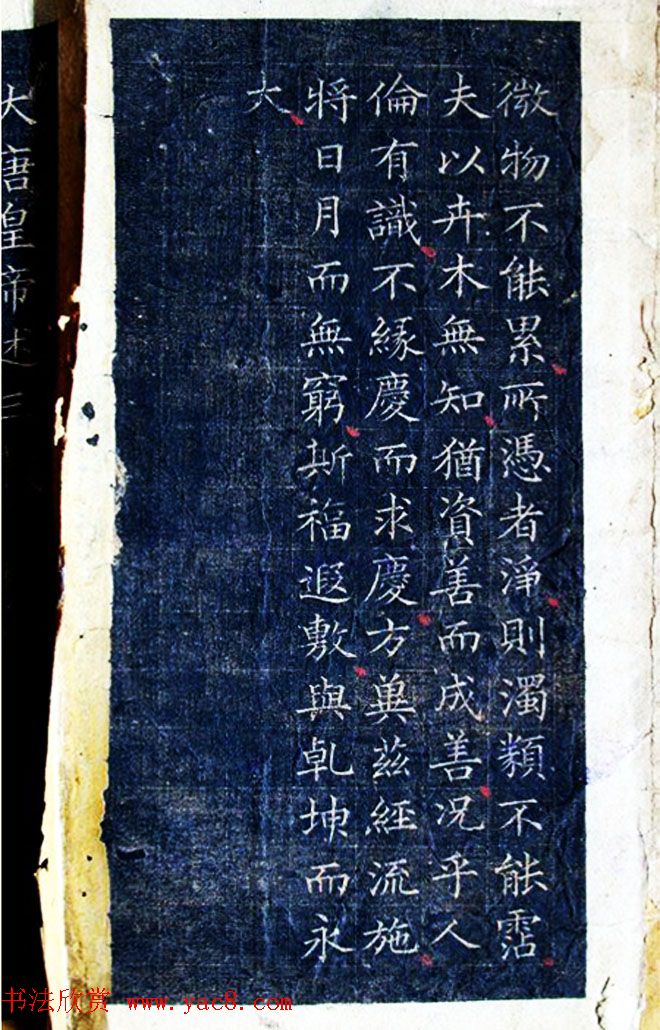 微物不能累所憑者淨則濁類不能霑
夫以卉木無知猶資善而成善況乎人
倫有識不緣慶而求慶方冀茲經流施
將日月而無窮斯福遐敷與乹坤而永
大
大唐皇帝述三
书法欣赏 www.yac8.com